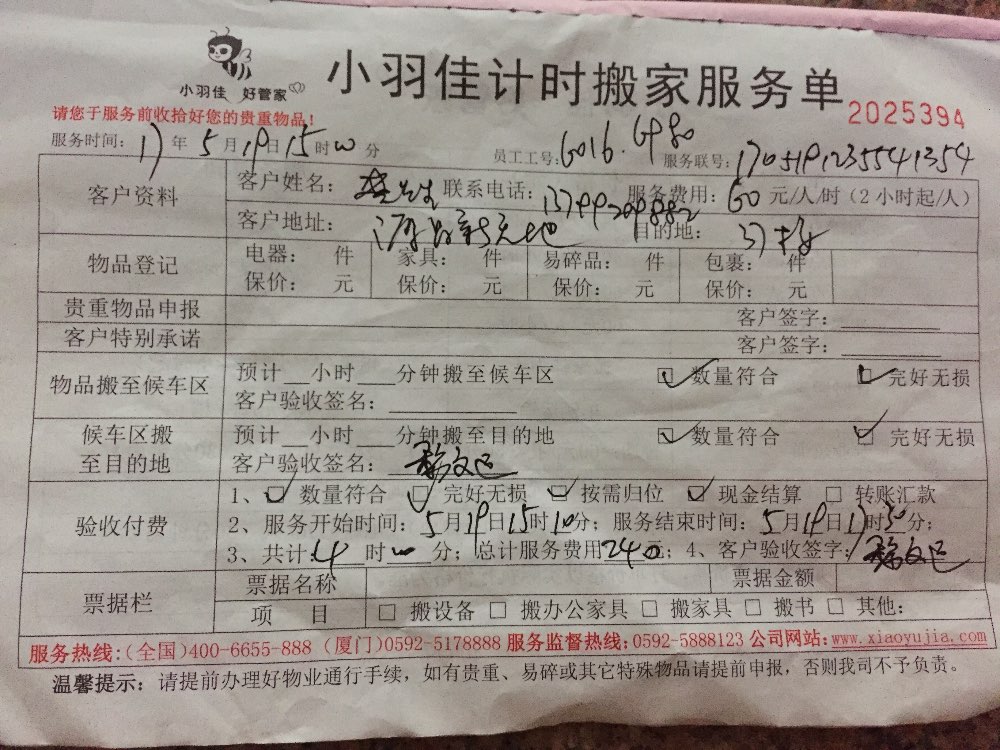 小羽佳 好管家
小羽佳计时搬家服务单
2025394
请您于服务前收拾好您的贵重物品！
服务时间：17年5月19日15时00分 员工工号：6016.6980 服务联号：1705191235541354
客户资料
客户姓名： 先生 联系电话： 服务费用：60元/人/时（2小时起/人）
客户地址： 目的地：
物品登记
电器： 件 家具： 件 易碎品： 件 包裹： 件
保价： 元 保价： 元 保价： 元 保价： 元
贵重物品申报 客户签字：
客户特别承诺 客户签字：
物品搬至候车区
预计 小时 分钟搬至候车区 数量符合 完好无损
客户验收签名：
候车区搬至目的地
预计 小时 分钟搬至目的地 数量符合 完好无损
客户验收签名：
验收付费
1、 数量符合 完好无损 按需归位 现金结算 转账汇款
2、服务开始时间：5月19日15时10分；服务结束时间：5月19日17时30分；
3、共计4时00分；总计服务费用240元；4、客户验收签字：
票据栏
票据名称 票据金额
项 目 搬设备 搬办公家具 搬家具 搬书 其他：
服务热线：(全国)400-6655-888 (厦门)0592-5178888 服务监督热线：0592-5888123 公司网站：www.xiaoyujia.com
温馨提示：请提前办理好物业通行手续，如有贵重、易碎或其它特殊物品请提前申报，否则我司不予负责。